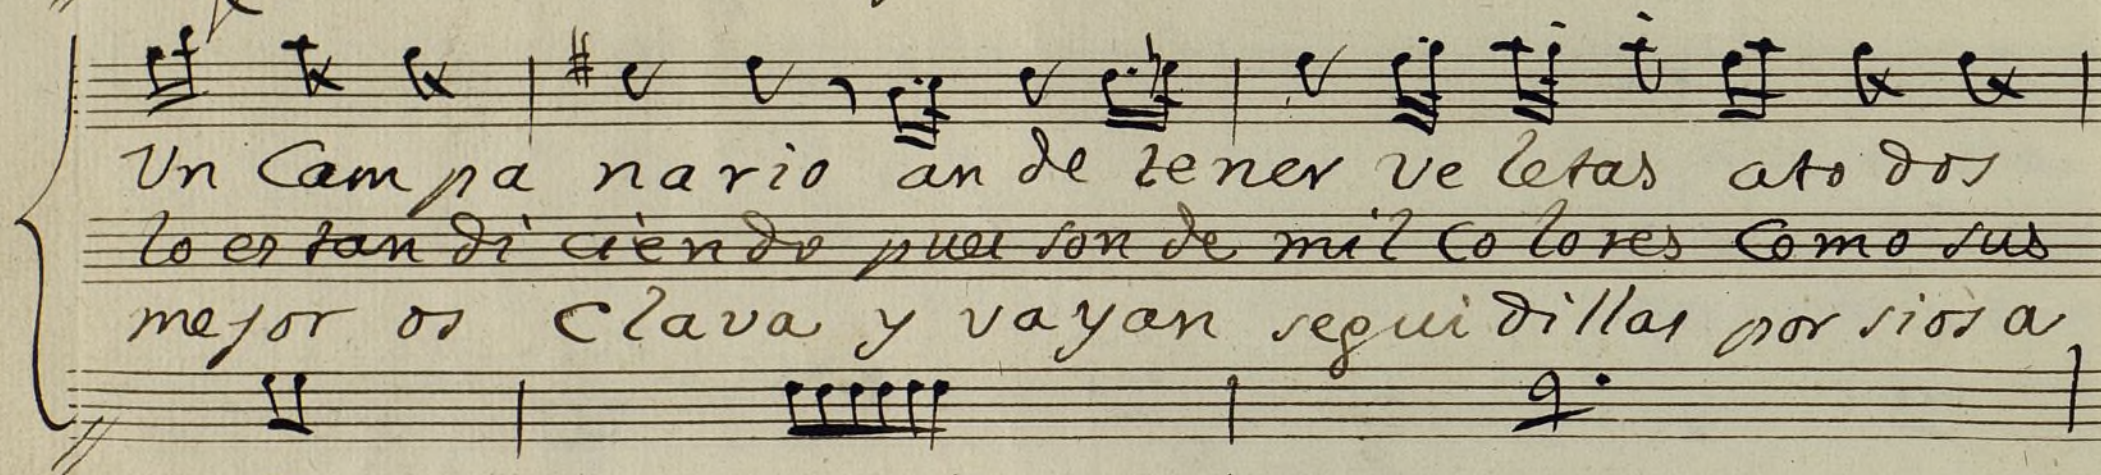 Un Campa nario an de tener ve letas ato dos
lo es tan di ciendo pues son de mil Co lores Como sus
mejor os Clava y vayan segui dillas por siosa